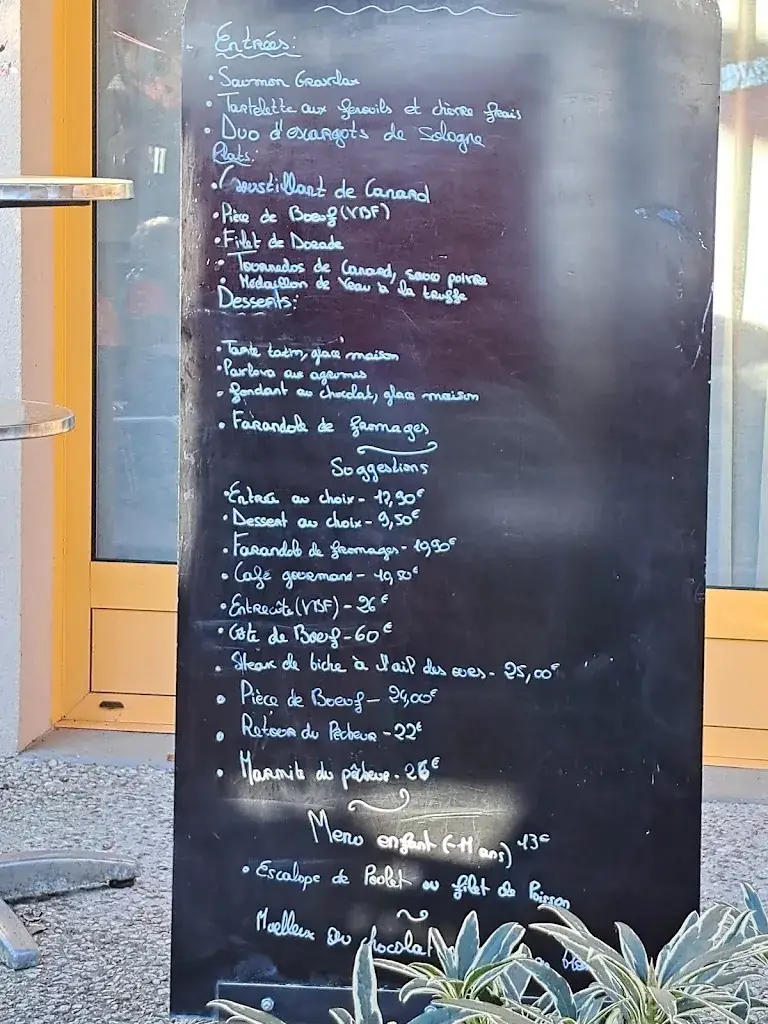 Entrées:
• Saumon Gravelax
• Tartelette aux fenouils et chèvre frais
• Duo d'escargots de Sologne
Plats:
• Croustillant de Canard
• Pièce de Boeuf (VBF)
• Filet de Dorade
• Tournedos de Canard, sauce poivre
• Médaillon de Veau à la truffe
Desserts:
• Tarte tatin, glace maison
• Pavlova aux agrumes
• fondant au chocolat, glace maison
• Farandole de fromages
Suggestions
• Entrée au choix - 12,90€
• Dessert au choix - 9,50€
• Farandole de fromages - 10,90€
• Café gourmand - 10,50€
• Entrecôte (VBF) - 26€
• Côte de Boeuf - 60€
• Steak de biche à l'ail des ours - 25,00€
• Pièce de Boeuf - 24,00€
• Retour du Pêcheur - 22€
• Marmite du pêcheur - 26€
Menu enfant (-11 ans) 13€
• Escalope de Poulet ou filet de Poisson
Moelleux au chocolat